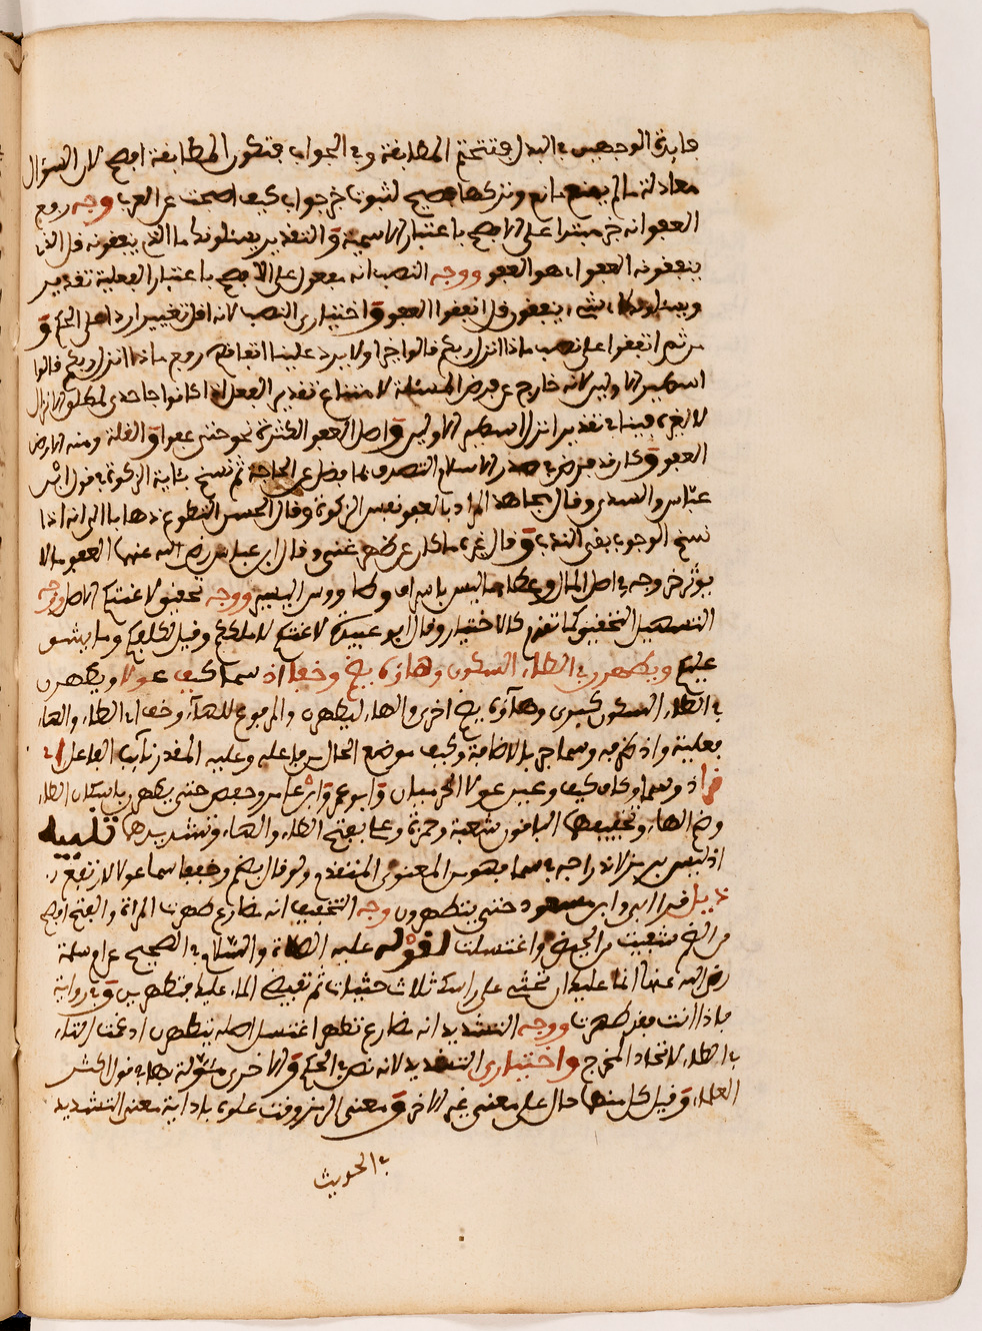 فايدة الوجهين في البدل فتتحتم المطابقة وفي الجواب فتكون المطابقة افصح لان السؤال
معادلة ما لم يمنع مانع وتركها فصيح لثبوت خير جواب كيف اصبحت عن العرب ووجه رفع
العفو انه خبر مبتدا على الافصح باعتبار الاسمية والتقدير يسئلونك ما الذي ينفقونه قل الذي
ينفقونه العفو او هو العفو ووجه النصب انه مفعول على الافصح باعتبار الفعلية تقدير
ويسئلونك اي شيء ينفقون قل انفقوا العفو واختياري النصب لانه اقل تغييرا وادل على الحكم و
من ثم اتفقوا على نصب ماذا انزل ربكم قالوا خيرا ولا يرد علينا اتفاقهم رفع ماذا انزل ربكم قالوا
اساطير الاولين لانه خارج عن فرض المسئلة لامتناع تقدير الفعل اذ كانوا جاحدي لمطلق الانزال
لا يقرون فينا في تقدير انزل اساطير الاولين واصل العفو الكثرة نحو حتى عفوا والقلة ومنه الارض
العفو وكان قد فرض في صدر الاسلام التصدق بما فضل عن الحاجة ثم نسخ بئاية الزكوة في قول ابن
عباس والسدي وقال مجاهد المراد بالعفو نفس الزكوة وقال الحسن التطوع ذهابا الى انه اذا
نسخ الوجوب بقي الندب وقال غيره ما كان عن ظهر غنى وقال ابن عباس رضي الله عنهما العفو ما لا
يوثر خروجه في اصل المال وعطاء ما ليس باسراف وطاووس اليسير ووجه تحقيق لاعنتكم الاصل ووجه
التسهيل التخفيف كما تقدم كالاختيار وقال ابو عبيدة لاعنتكم لاهلككم وقيل لكلفكم وما يشق
عليكم ويطهرن في الطاء السكون وهاؤه يضم وخفا اذ سما كيف عولا ويطهرن
في الطاء السكون كبرى وهاؤه يضم اخرى والهاء ليطهرن والمرفوع للهاء وخفا اي الطاء والهاء
فعلية واذ ظرفه وسما جر بالاضافة وكيف موضع الحال من فاعله وعليه المقدر نايب الفاعل اي
قرا ذو سما وكاف كيف وعين عولا الحرميان وابو عمرو وابن عامر وحفص حتى يطهرن باسكان الطاء
وضم الهاء وتخفيفهما الباقون شعبة وحمزة وعلي بفتح الطاء والهاء وتشديدهما تنبيه
اذ ليس برمز لاندراجه في سما فهو من المعنوي المتقدم ولو قال يضم وخففا سما عولا لارتفع
تذييل قرا ابي وابن مسعود حتى يتطهرون وجه التخفيف انه مضارع طهرت المراة والفتح افصح
من الضم شفيت من الحيض واغتسلت لقوله عليه الصلاة والسلام في الصحيح عن ام سلمة
رضي الله عنها انما عليك ان تحثي على راسك ثلاث حثيات ثم تفيضي الماء عليك فتطهرين وفي رواية
فاذا انت فقد طهرت ووجه التشديد انه مضارع تطهر اغتسل اصله يتطهرن ادغمت التاء
في الطاء لاتحاد المخرج واختياري التشديد لانه نص في الحكم والاخرى مئولة بها في قول اكثر
العلماء وقيل كل منهما دال على معنى غير الاخر ومعنى الرمز وقت علوه بافادته معنى التشديد
في الحديث